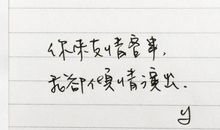 你来友情客串，
我却倾情演出。
y